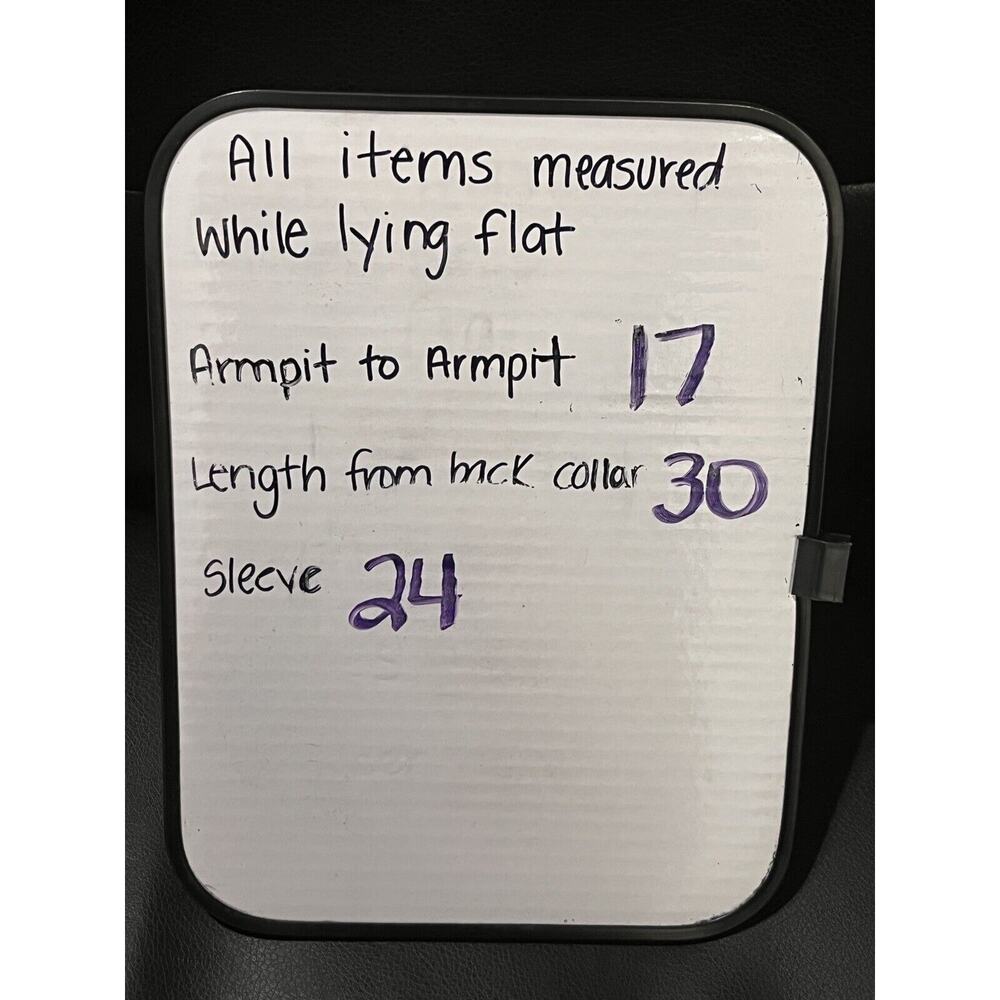 All items measured
while lying flat
Armpit to Armpit 17
Length from back collar 30
Sleeve 24